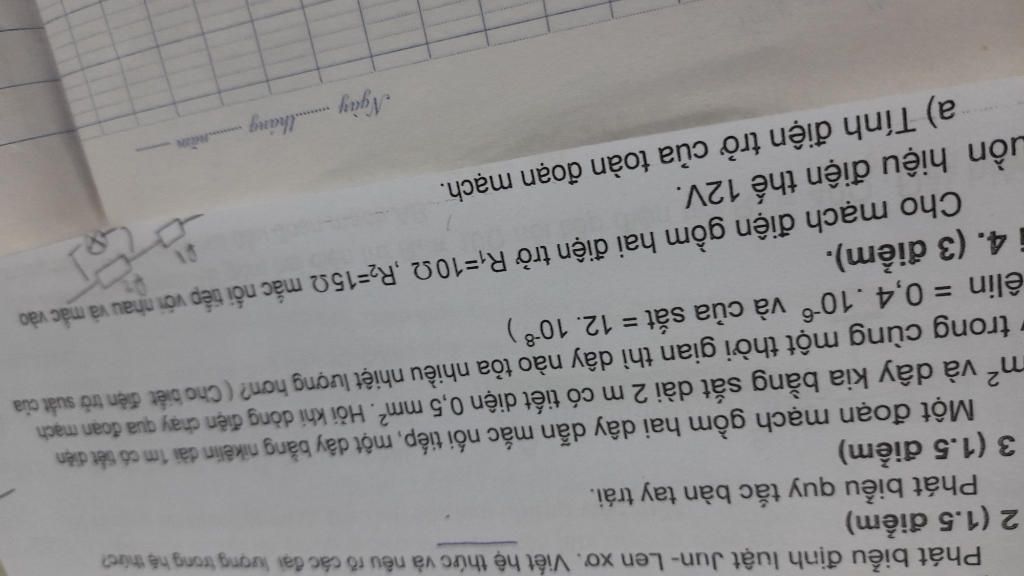 Phát biểu định luật Jun- Len xơ. Viết hệ thức và nêu rõ các đại lượng trong hệ thức?
2 (1.5 điểm)
Phát biểu quy tắc bàn tay trái.
3 (1.5 điểm)
Một đoạn mạch gồm hai dây dẫn mắc nối tiếp, một dây bằng nikêlin dài 1m có tiết diện
m² và dây kia bằng sắt dài 2 m có tiết diện 0,5 mm². Hỏi khi dòng điện chạy qua đoạn mạch
trong cùng một thời gian thì dây nào tỏa nhiều nhiệt lượng hơn? ( Cho biết điện trở suất của
êlin = 0,4 .10⁻⁶ và của sắt = 12. 10⁻⁸ )
4. (3 điểm).
Cho mạch điện gồm hai điện trở R₁=10Ω ,R₂=15Ω mắc nối tiếp với nhau và mắc vào
uồn hiệu điện thế 12V.
a) Tính điện trở của toàn đoạn mạch.
Ngày ......... tháng ......... năm